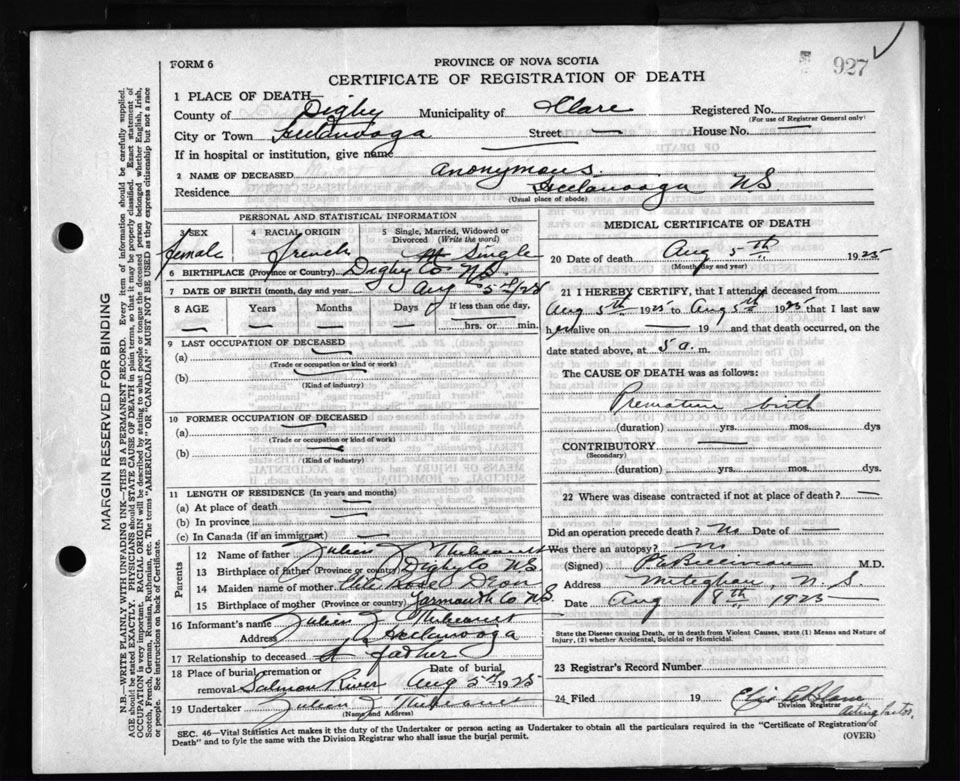 927
FORM 6
PROVINCE OF NOVA SCOTIA
CERTIFICATE OF REGISTRATION OF DEATH
1 PLACE OF DEATH—
County of Digby Municipality of Clare Registered No.
(For use of Registrar General only)
City or Town Street — House No. —
If in hospital or institution, give name —
2 NAME OF DECEASED Anonymous.
Residence N.S.
(Usual place of abode)
PERSONAL AND STATISTICAL INFORMATION
3 SEX 4 RACIAL ORIGIN 5 Single, Married, Widowed or Divorced (Write the word)
female french Single
6 BIRTHPLACE (Province or Country) Digby Co N.S.
7 DATE OF BIRTH (month, day and year) Aug 5th/25
8 AGE Years Months Days If less than one day,
— — — — hrs. or min.
9 LAST OCCUPATION OF DECEASED
(a) —
(Trade or occupation or kind or work)
(b) —
(Kind of industry)
10 FORMER OCCUPATION OF DECEASED
(a) —
(Trade or occupation or kind of work)
(b) —
(Kind of industry)
11 LENGTH OF RESIDENCE (In years and months)
(a) At place of death —
(b) In province —
(c) In Canada (if an immigrant) —
Parents
12 Name of father Julien
13 Birthplace of father (Province or country) Digby Co N.S.
14 Maiden name of mother Rose
15 Birthplace of mother (Province or country) Yarmouth Co N.S.
16 Informant's name Julien
Address
17 Relationship to deceased father
18 Place of burial, cremation or removal Salmon River Date of burial Aug 5th 1925
19 Undertaker Julien
(Name and Address)
MEDICAL CERTIFICATE OF DEATH
20 Date of death Aug 5th 1925
(Month day and year)
21 I HEREBY CERTIFY, that I attended deceased from
Aug 5th 1925 to Aug 5th 1925 that I last saw
her alive on — 19 and that death occurred, on the
date stated above, at 5 a. m.
The CAUSE OF DEATH was as follows:
Premature birth
(duration) yrs. mos. dys
CONTRIBUTORY —
(Secondary)
(duration) yrs. mos. dys.
22 Where was disease contracted if not at place of death? —
Did an operation precede death? No Date of —
Was there an autopsy? No
(Signed) M.D.
Address Meteghan, N.S.
Date Aug 8th 1925
State the Disease causing Death, or in death from Violent Causes, state (1) Means and Nature of
Injury, (2) whether Accidental, Suicidal or Homicidal.
23 Registrar's Record Number
24 Filed 19
Division Registrar
SEC. 46—Vital Statistics Act makes it the duty of the Undertaker or person acting as Undertaker to obtain all the particulars required in the "Certificate of Registration of
Death" and to fyle the same with the Division Registrar who shall issue the burial permit. (OVER)
MARGIN RESERVED FOR BINDING
N.B.—WRITE PLAINLY WITH UNFADING INK—THIS IS A PERMANENT RECORD. Every item of information should be carefully supplied.
AGE should be stated EXACTLY. PHYSICIANS should STATE CAUSE OF DEATH in plain terms, so that it may be properly classified. Exact statement of
OCCUPATION is very important. RACIAL ORIGIN will be described by stating to what people or tongue the deceased person belonged whether English, Irish,
Scotch, French, German, Russian, Ruthenian, etc. The terms "AMERICAN" OR "CANADIAN" MUST NOT BE USED as they express citizenship but not a race
or people. See instructions on back of Certificate.